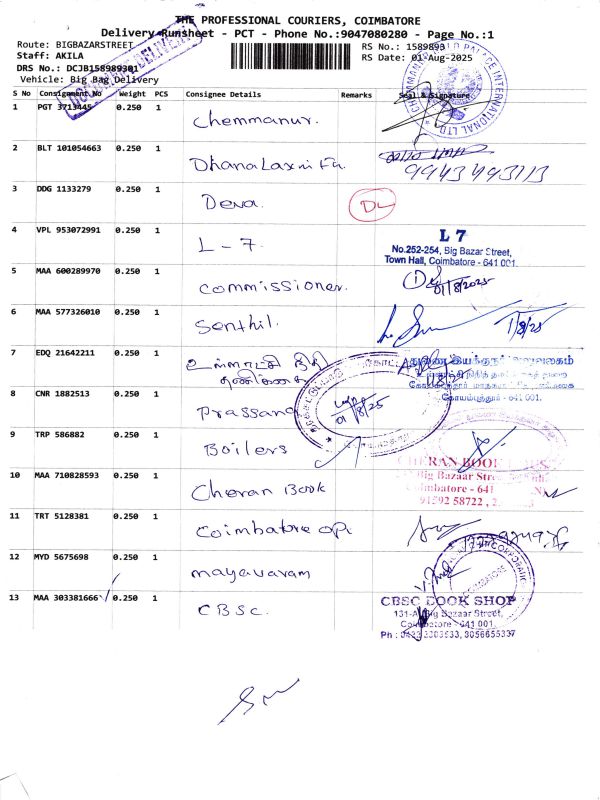 THE PROFESSIONAL COURIERS, COIMBATORE
Delivery Runsheet - PCT - Phone No.:9047080280 - Page No.:1
Route: BIGBAZARSTREET
RS No.: 1589893
Staff: AKILA
RS Date: 01-Aug-2025
DRS No.: DCJB158989301
Vehicle: Big Bag Delivery
S No Consignment No Weight PCS Consignee Details Remarks Seal & Signature
1 PGT 3713445 0.250 1 Chemmanur.
2 BLT 101054663 0.250 1 Dhana Laxmi Fu.
9943493113
3 DDG 1133279 0.250 1 Deva. DL
4 VPL 953072991 0.250 1 L - 7.
L 7
No.252-254, Big Bazar Street,
Town Hall, Coimbatore - 641 001.
5 MAA 600289970 0.250 1 Commissioner.
01/8/2025
6 MAA 577326010 0.250 1 Senthil.
1/8/25
7 EDQ 21642211 0.250 1 உள்ளாட்சி நிதி
தணிக்கை
கோயம்புத்தூர் - 641 001.
8 CNR 1882513 0.250 1 Prassana
01/8/25
9 TRP 586882 0.250 1 Boilers
CHERAN BOOK
Big Bazaar Street
Coimbatore - 641
91592 58722
10 MAA 710828593 0.250 1 Cheran Book
11 TRT 5128381 0.250 1 Coimbatore opi
12 MYD 5675698 0.250 1 mayavaram
13 MAA 303381666 0.250 1 CBSC.
CBSC BOOK SHOP
131-A, Big Bazaar Street,
Coimbatore - 641 001.